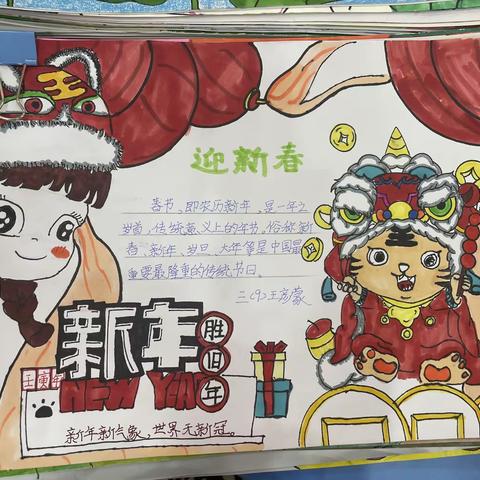 王
迎新春
春节,即农历新年,是一年之
岁首,传统意义上的年节,俗称新
春、新年、岁旦、大年等是中国最
重要最隆重的传统节日。
三(9)王彦蒙
新年
胜旧年
壬寅年
NEW YEAR
新年新气象,世界无新冠。